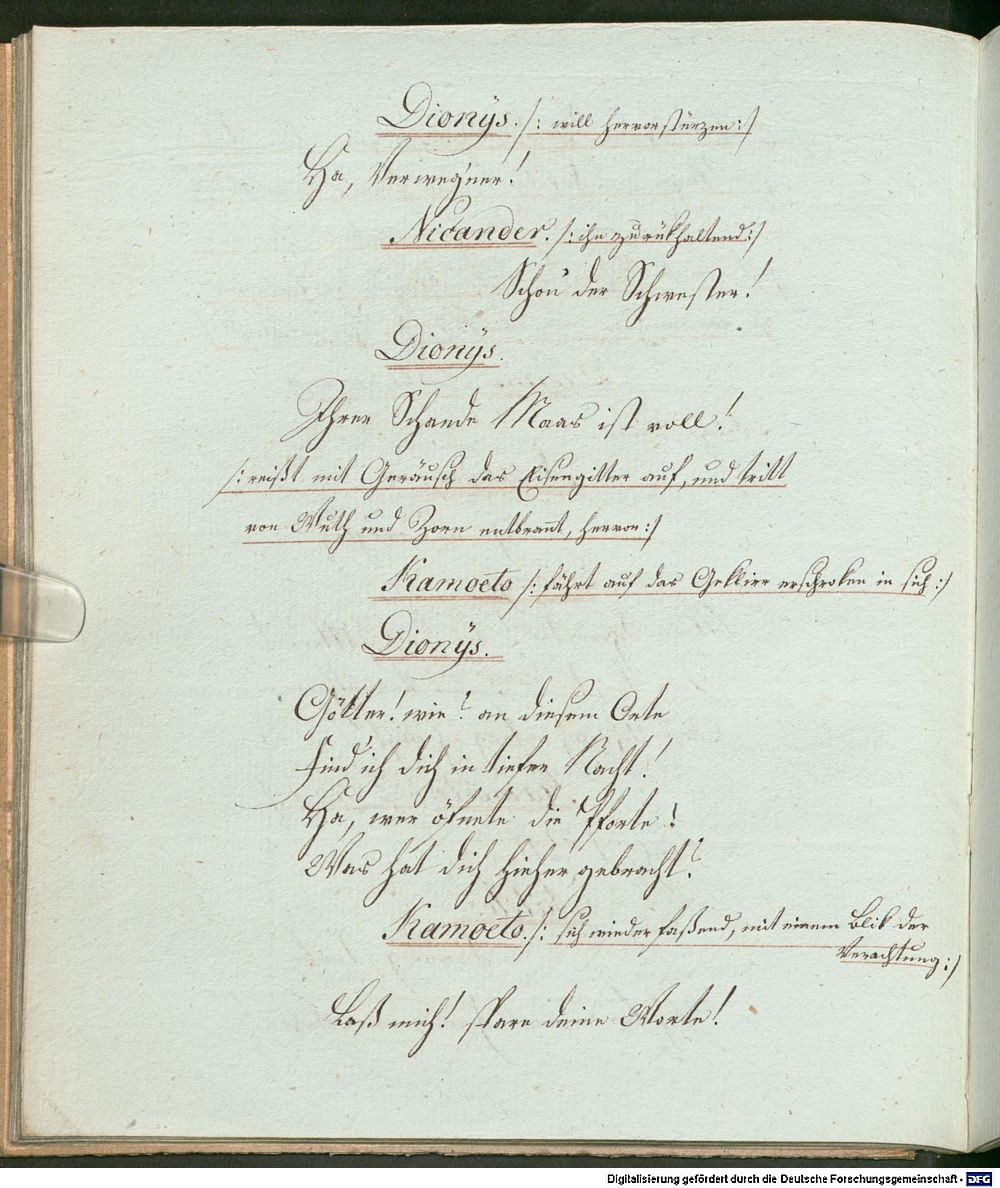 Dionÿs. /: will hervorstürzen :/
Ha, Verweg'ner!
Nicander. /: ihn zurükhaltend :/
Schon' der Schwester!
Dionÿs.
Ihrer Schande Maas ist voll!
/: reißt mit Geräusch das Eisengitter auf, und tritt
von Wuth und Zorn entbrant, hervor :/
Kamoeto /: fährt auf das Geklirr erschroken in sich :/
Dionÿs.
Götter! wie? an diesem Orte
Find' ich dich in tiefer Nacht!
Ha, wer öfnete die Pforte!
Was hat dich hieher gebracht?
Kamoeto. /: sich wieder faßend, mit einem Blik der
Verachtung :/
Laß mich! spare deine Worte!
Digitalisierung gefördert durch die Deutsche Forschungsgemeinschaft - DFG